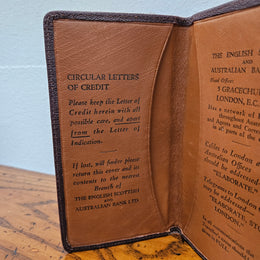 CIRCULAR LETTERS
OF CREDIT.
Please keep the Letter of
Credit herein with all
possible care, and apart
from the Letter of
Indication.
If lost, will finder please
return this cover and its
contents to the nearest
Branch of
THE ENGLISH SCOTTISH
AND
AUSTRALIAN BANK LTD.
THE ENGLISH
AND
AUSTRALIAN BA
Head Office:
5 GRACECHU
LONDON, E.C.
Has a network of
throughout Au
and Agents and Corre
in all parts of the
Cables to London
Australian Offices
should be addressed
"ELABORATE."
Telegrams to London
may be addressed